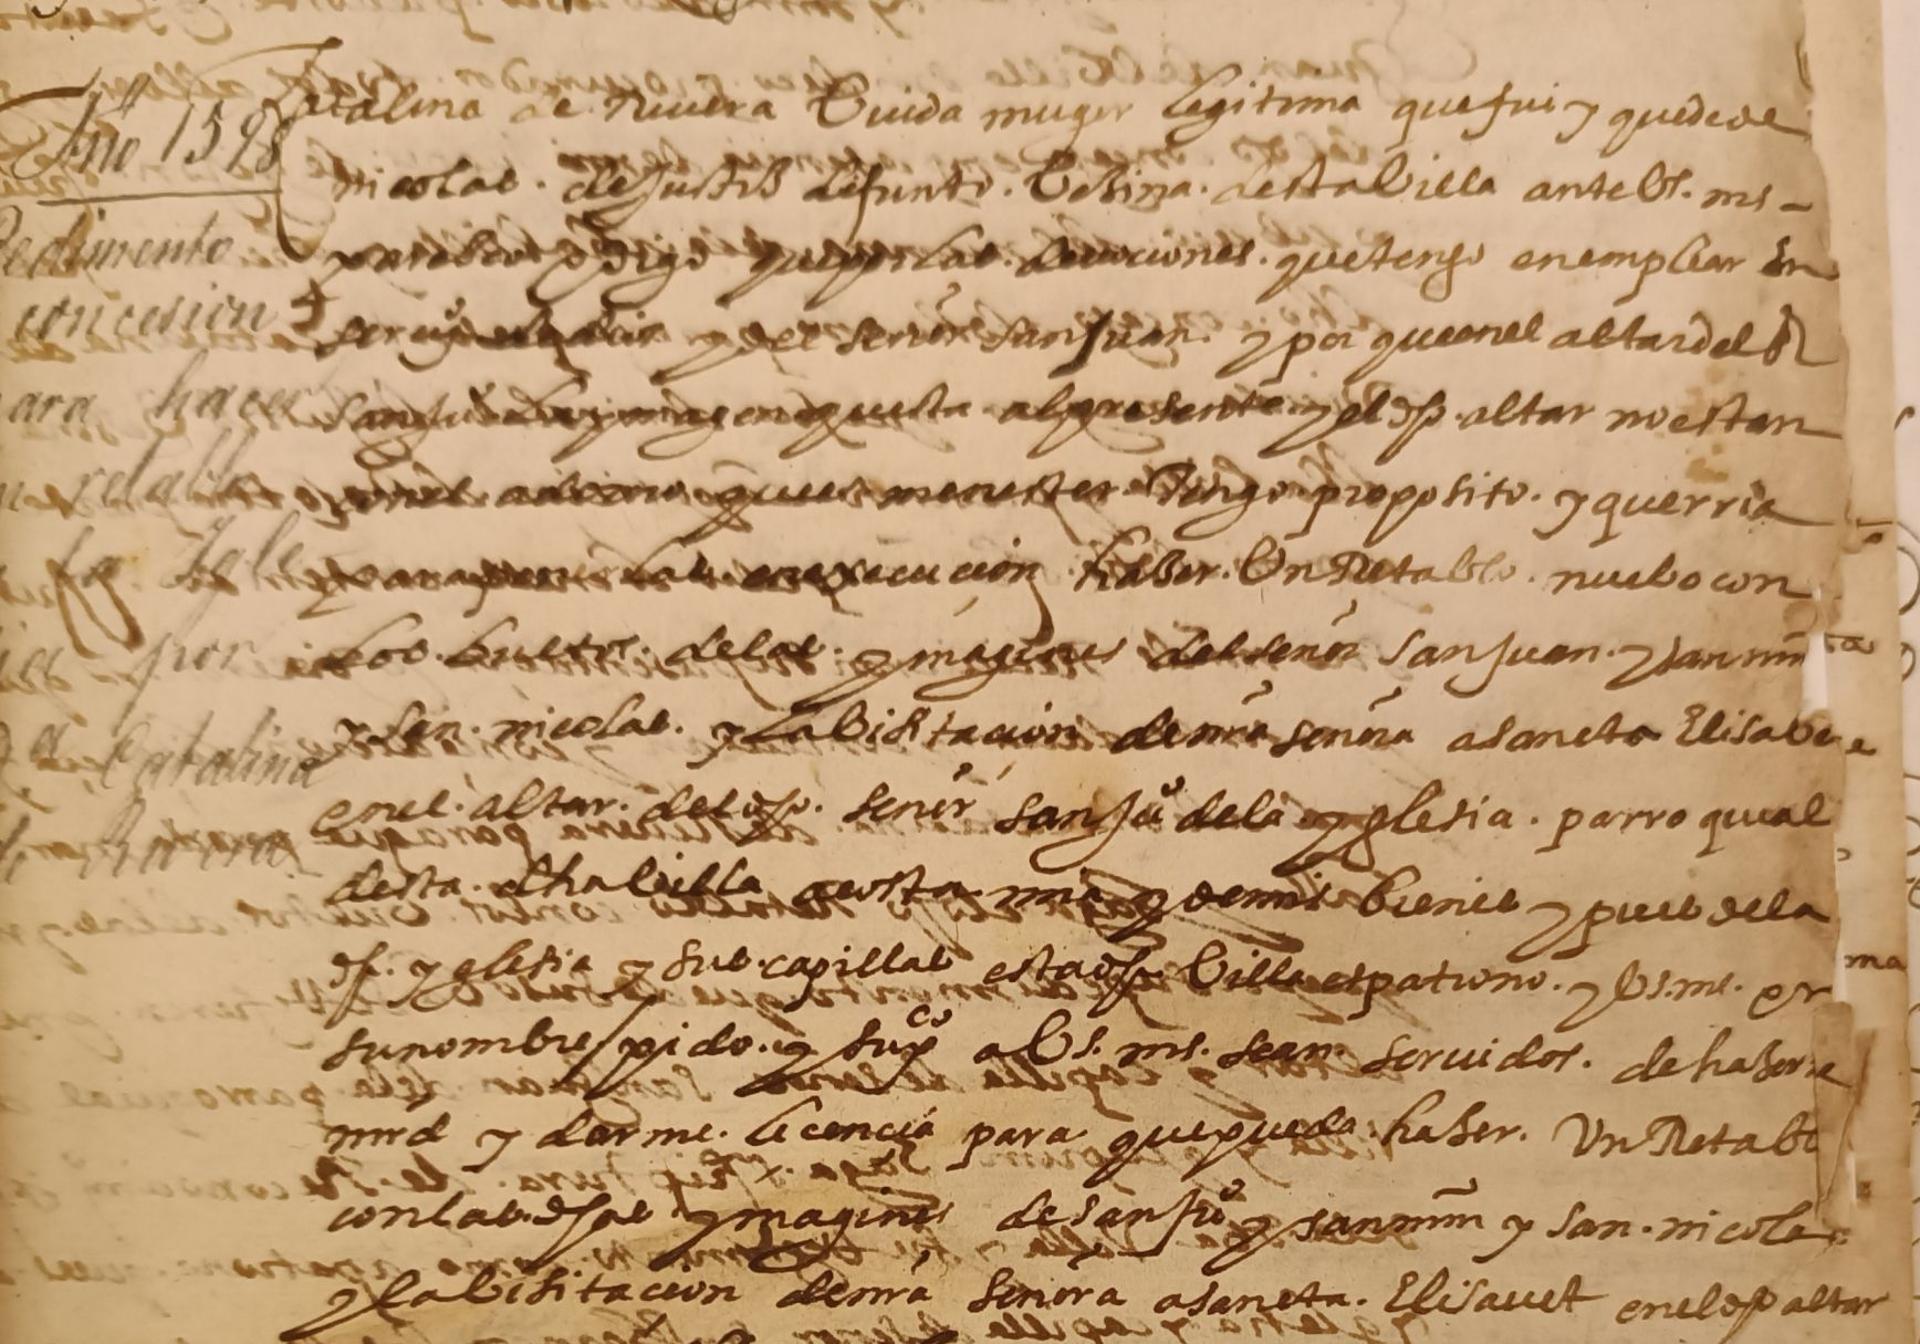 Año 1598
Pedimento
concesion
para hacer
retablo
Igle
por
Catalina
Catalina de Riuera Viuda muger legitima que fui y quede de
nicolas. de Justis defunto. Vesina. desta Villa ante Vs. ms
paresco y digo que por las deuociones. que tengo en emplear en
seruyo y del señor san Juan. y por que en el altar del sr
san Juº la ymagen questa al presente y el dho. altar no estan
con el adorno ques menester Tengo proposito. y querria
para poner las en execucion haser. Vn Retablo. nuebo con
los bultos. de las. ymagines del señor san Juan. y san mrn
y san. nicolas. y la bisitacion de nra señora a santa Elisabe
en el. altar. del dho. señor san Juº de la yglesia. parroquial
desta. dha Villa a costa mia y de mis bienes y pues de la
dha. yglesia y sus. capillas esta dha Villa es patrono. y Vs. ms. en
su nombre pido. y supco a Vs. ms. sean. seruidos. de haserme
mrd y darme. licencia para que pueda haser. Vn Retabl
con las. dhas ymagines de san Juº y san mrn y san. nicolas
y la bisitacion de nra señora a santa. Elisauet en el dho altar